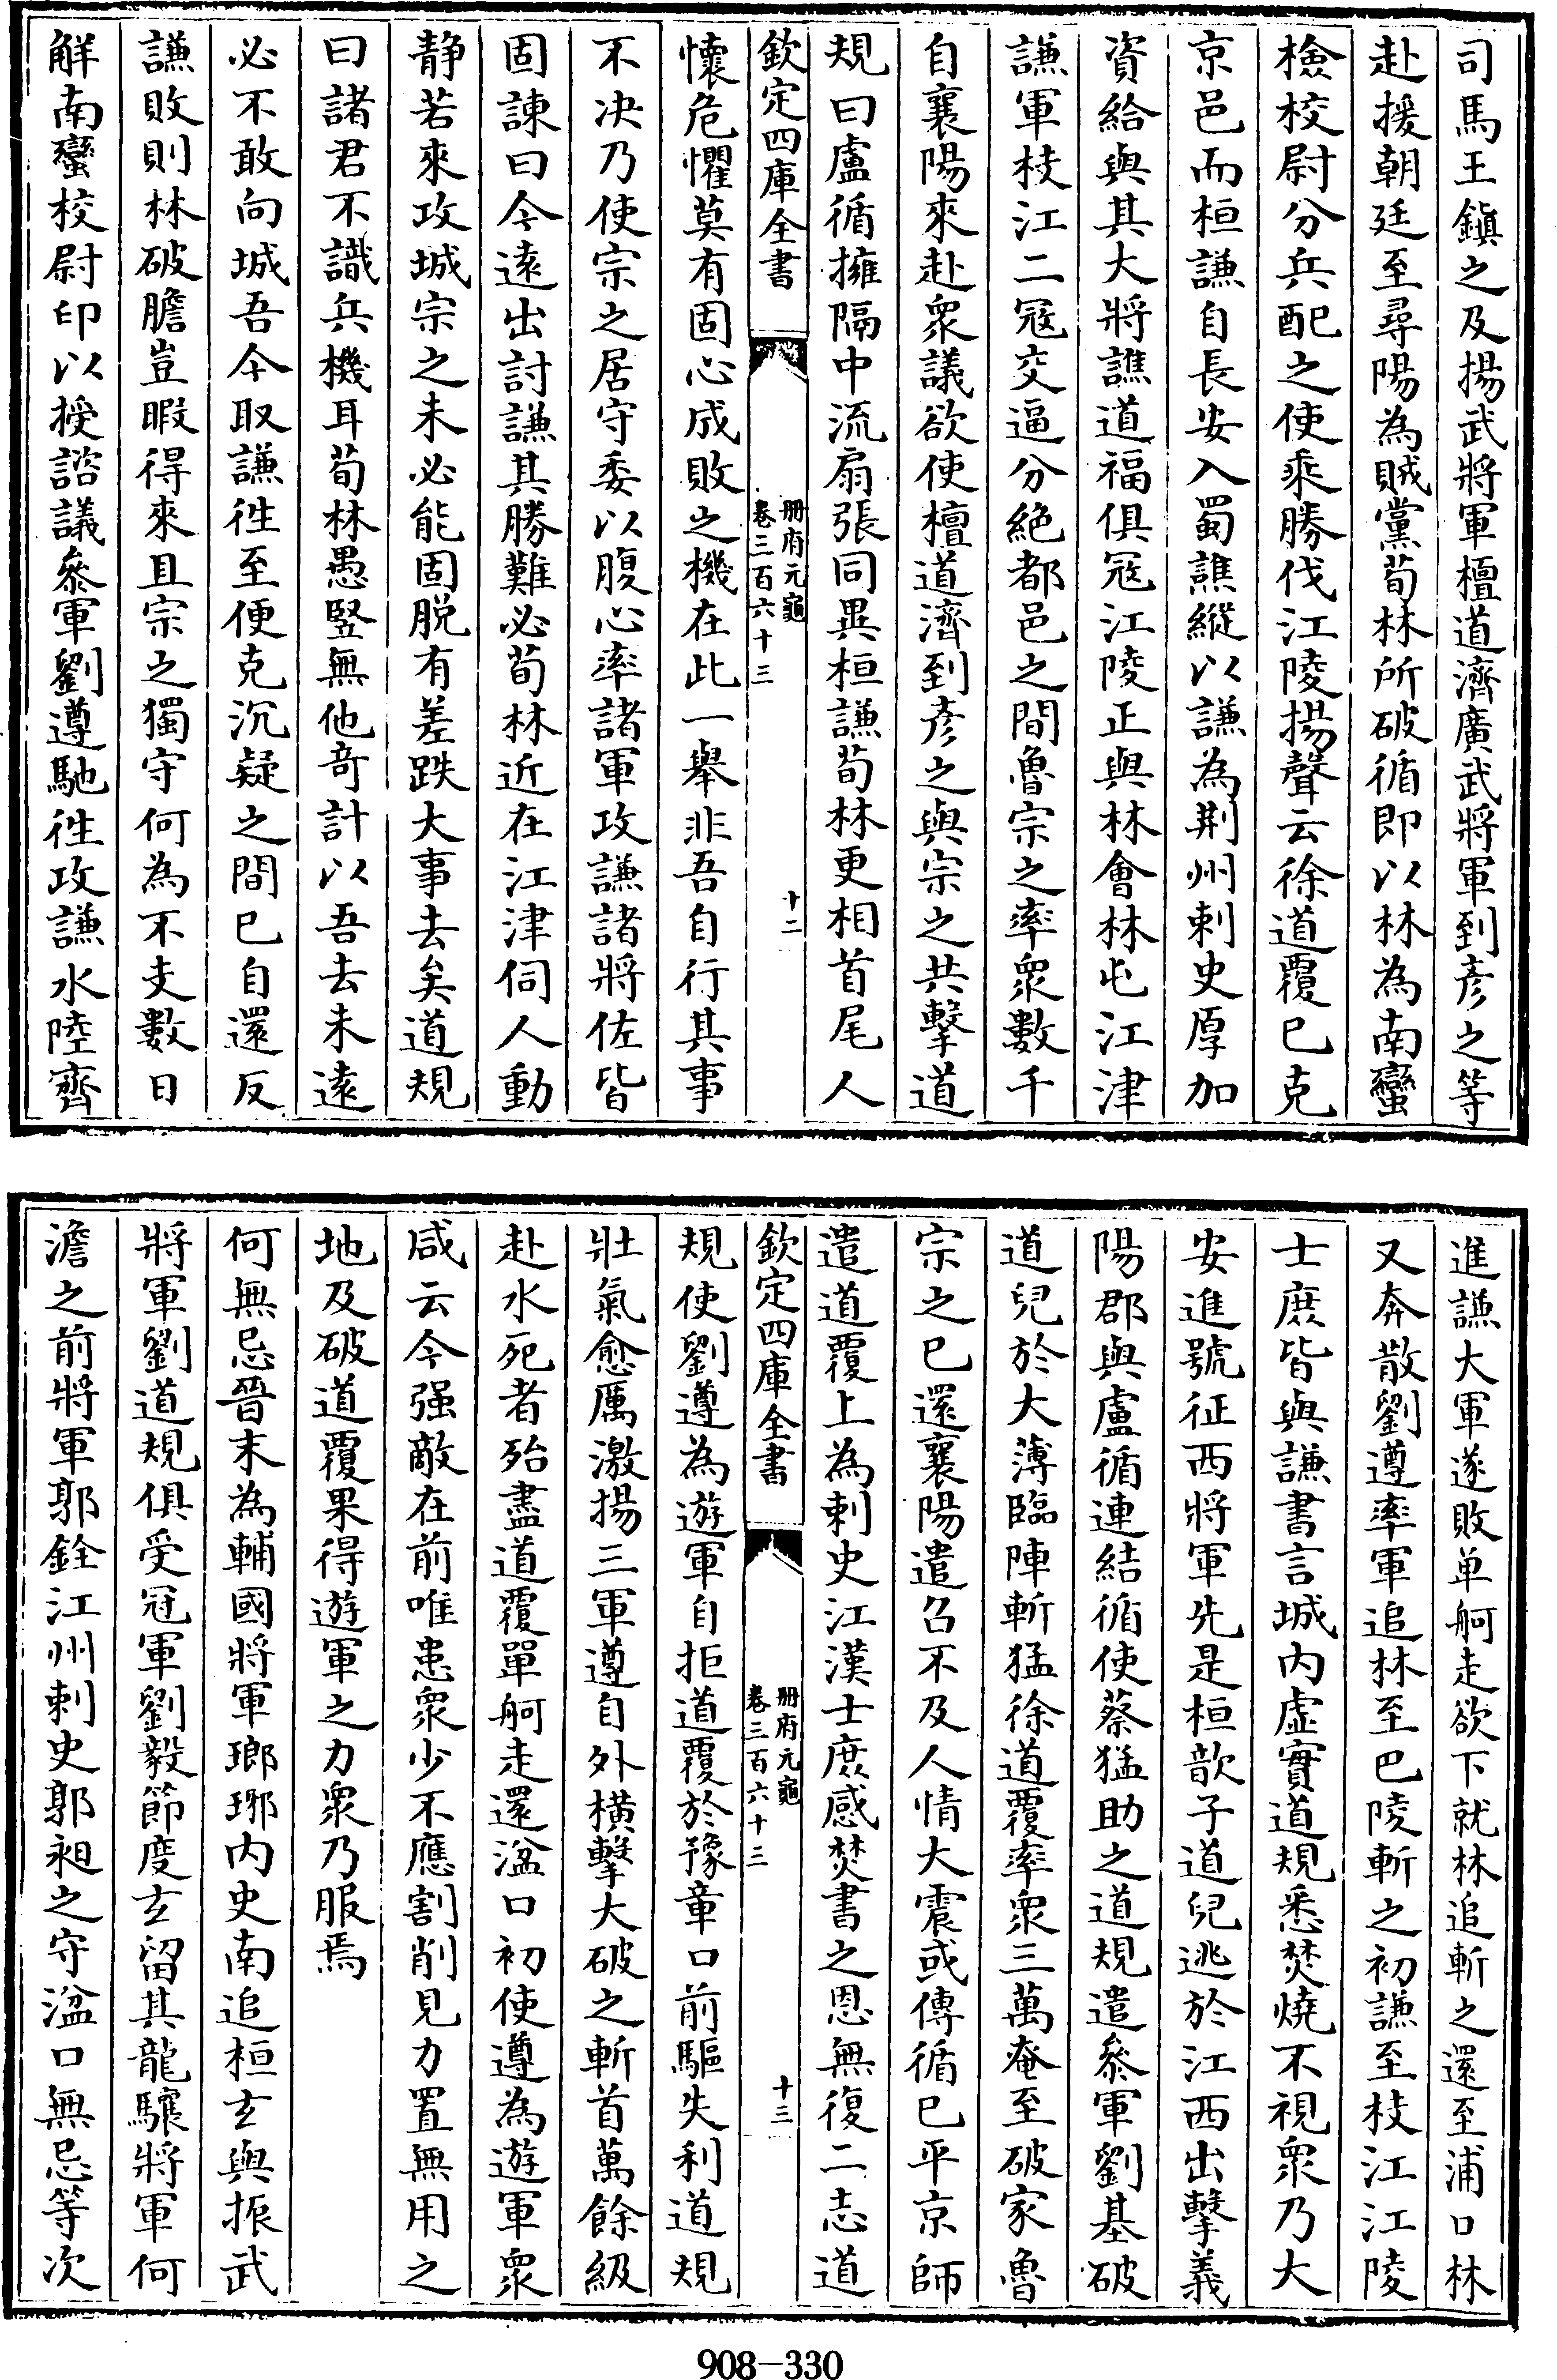 司馬王鎮之及揚武將軍檀道濟廣武將軍到彥之等
赴援朝廷至尋陽為賊黨荀林所破循即以林為南蠻
檢校尉分兵配之使乘勝伐江陵揚聲云徐道覆已克
京邑而桓謙自長安入蜀譙縱以謙為荆州刺史厚加
資給與其大將譙道福俱寇江陵正與林會林屯江津
謙軍枝江二寇交逼分絶都邑之間魯宗之率衆數千
自襄陽來赴衆議欲使檀道濟到彥之與宗之共擊道
規曰盧循擁隔中流扇張同異桓謙荀林更相首尾人
欽定四庫全書
冊府元龜
卷三百六十三
十二
懷危懼莫有固心成敗之機在此一舉非吾自行其事
不决乃使宗之居守委以腹心率諸軍攻謙諸將佐皆
固諫曰今遠出討謙其勝難必荀林近在江津伺人動
静若來攻城宗之未必能固脱有差跌大事去矣道規
曰諸君不識兵機耳荀林愚竪無他竒計以吾去未遠
必不敢向城吾今取謙徃至便克沉疑之間已自還反
謙敗則林破膽豈暇得來且宗之獨守何為不支數日
解南蠻校尉印以授諮議叅軍劉遵馳徃攻謙水陸齊
進謙大軍遂敗单舸走欲下就林追斬之還至浦口林
又奔散劉遵率軍追林至巴陵斬之初謙至枝江江陵
士庶皆與謙書言城内虚實道規悉焚燒不視衆乃大
安進號征西將軍先是桓歆子道兒逃於江西出擊義
陽郡與盧循連結循使蔡猛助之道規遣叅軍劉基破
道兒於大薄臨陣斬猛徐道覆率衆三萬奄至破家魯
宗之已還襄陽遣召不及人情大震或傳循已平京師
遣道覆上為刺史江漢士庶感焚書之恩無復二志道
欽定四庫全書
冊府元龜
卷三百六十三
十三
規使劉遵為遊軍自拒道覆於豫章口前驅失利道規
壯氣愈厲激揚三軍遵自外横擊大破之斬首萬餘級
赴水死者殆盡道覆單舸走還湓口初使遵為遊軍衆
咸云今强敵在前唯患衆少不應割削見力置無用之
地及破道覆果得遊軍之力衆乃服焉
何無忌晉末為輔國將軍瑯琊内史南追桓玄與振武
將軍劉道規俱受冠軍劉毅節度玄留其龍驤將軍何
澹之前將軍郭銓江州刺史郭昶之守湓口無忌等次
908-330